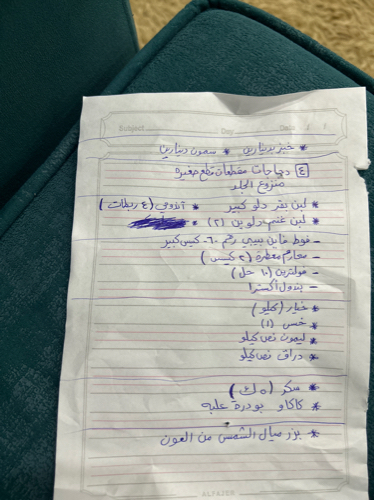 Subject Day Date / /
* خبز بدينارين * سمون دينارين
٤ دجاجات مقطعات قطع صغيرة
منزوع الجلد
* لبن بقر دلو كبير * اندومي (٤ ربطات)
* لبن غنم دلوين (٢) *
- فوط فاين بيبي رقم ٦٠ كيس كبير
- محارم معطرة (٢ كيس)
- فولترين (١٠ حل)
- بندول أكسترا
* خيار (كيلو)
* خس (١)
* ليمون نص كيلو
* دراق نص كيلو
* سكر (٥ ك)
* كاكاو بودرة علبه
* بزر ميال الشمس من العون
ALFAJER